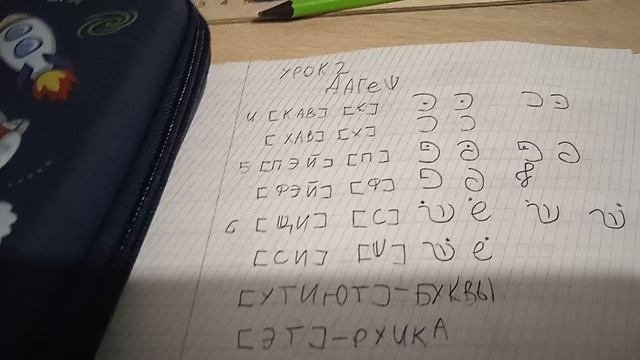 УРОК 2
ДАГеШ
4 [КАВ] [К] כּ כּ כ כ
[ХАВ] [Х] כ כ
5 [ПЭЙ] [П] פּ פּ פּ פ
[ФЭЙ] [Ф] פ פ
6 [ЩИ] [С] שׁ שׁ שׁ שׁ
[ССИ] [Ш] שׂ שׂ
[УТИЮТ]-БУКВЫ
[ЭТ]-РУЧКА